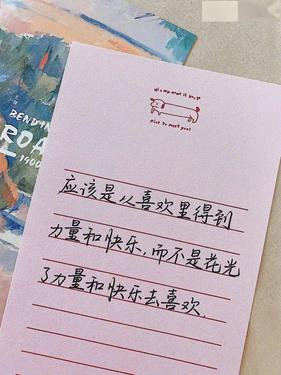 nice to meet you!
应该是从喜欢里得到
力量和快乐,而不是花光
了力量和快乐去喜欢
BENDIN
ROA